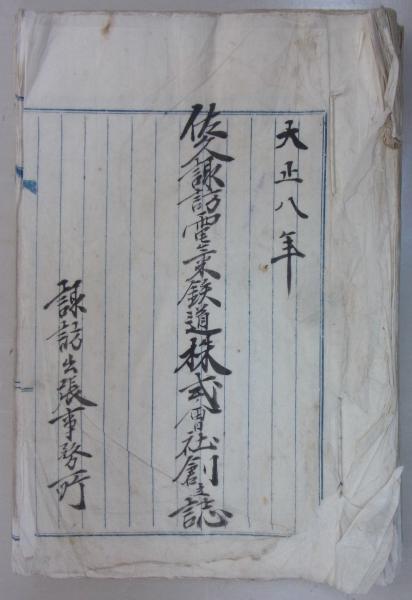 大正八年
佐久諏訪電氣鉄道株式會社創立誌
諏訪出張事務所